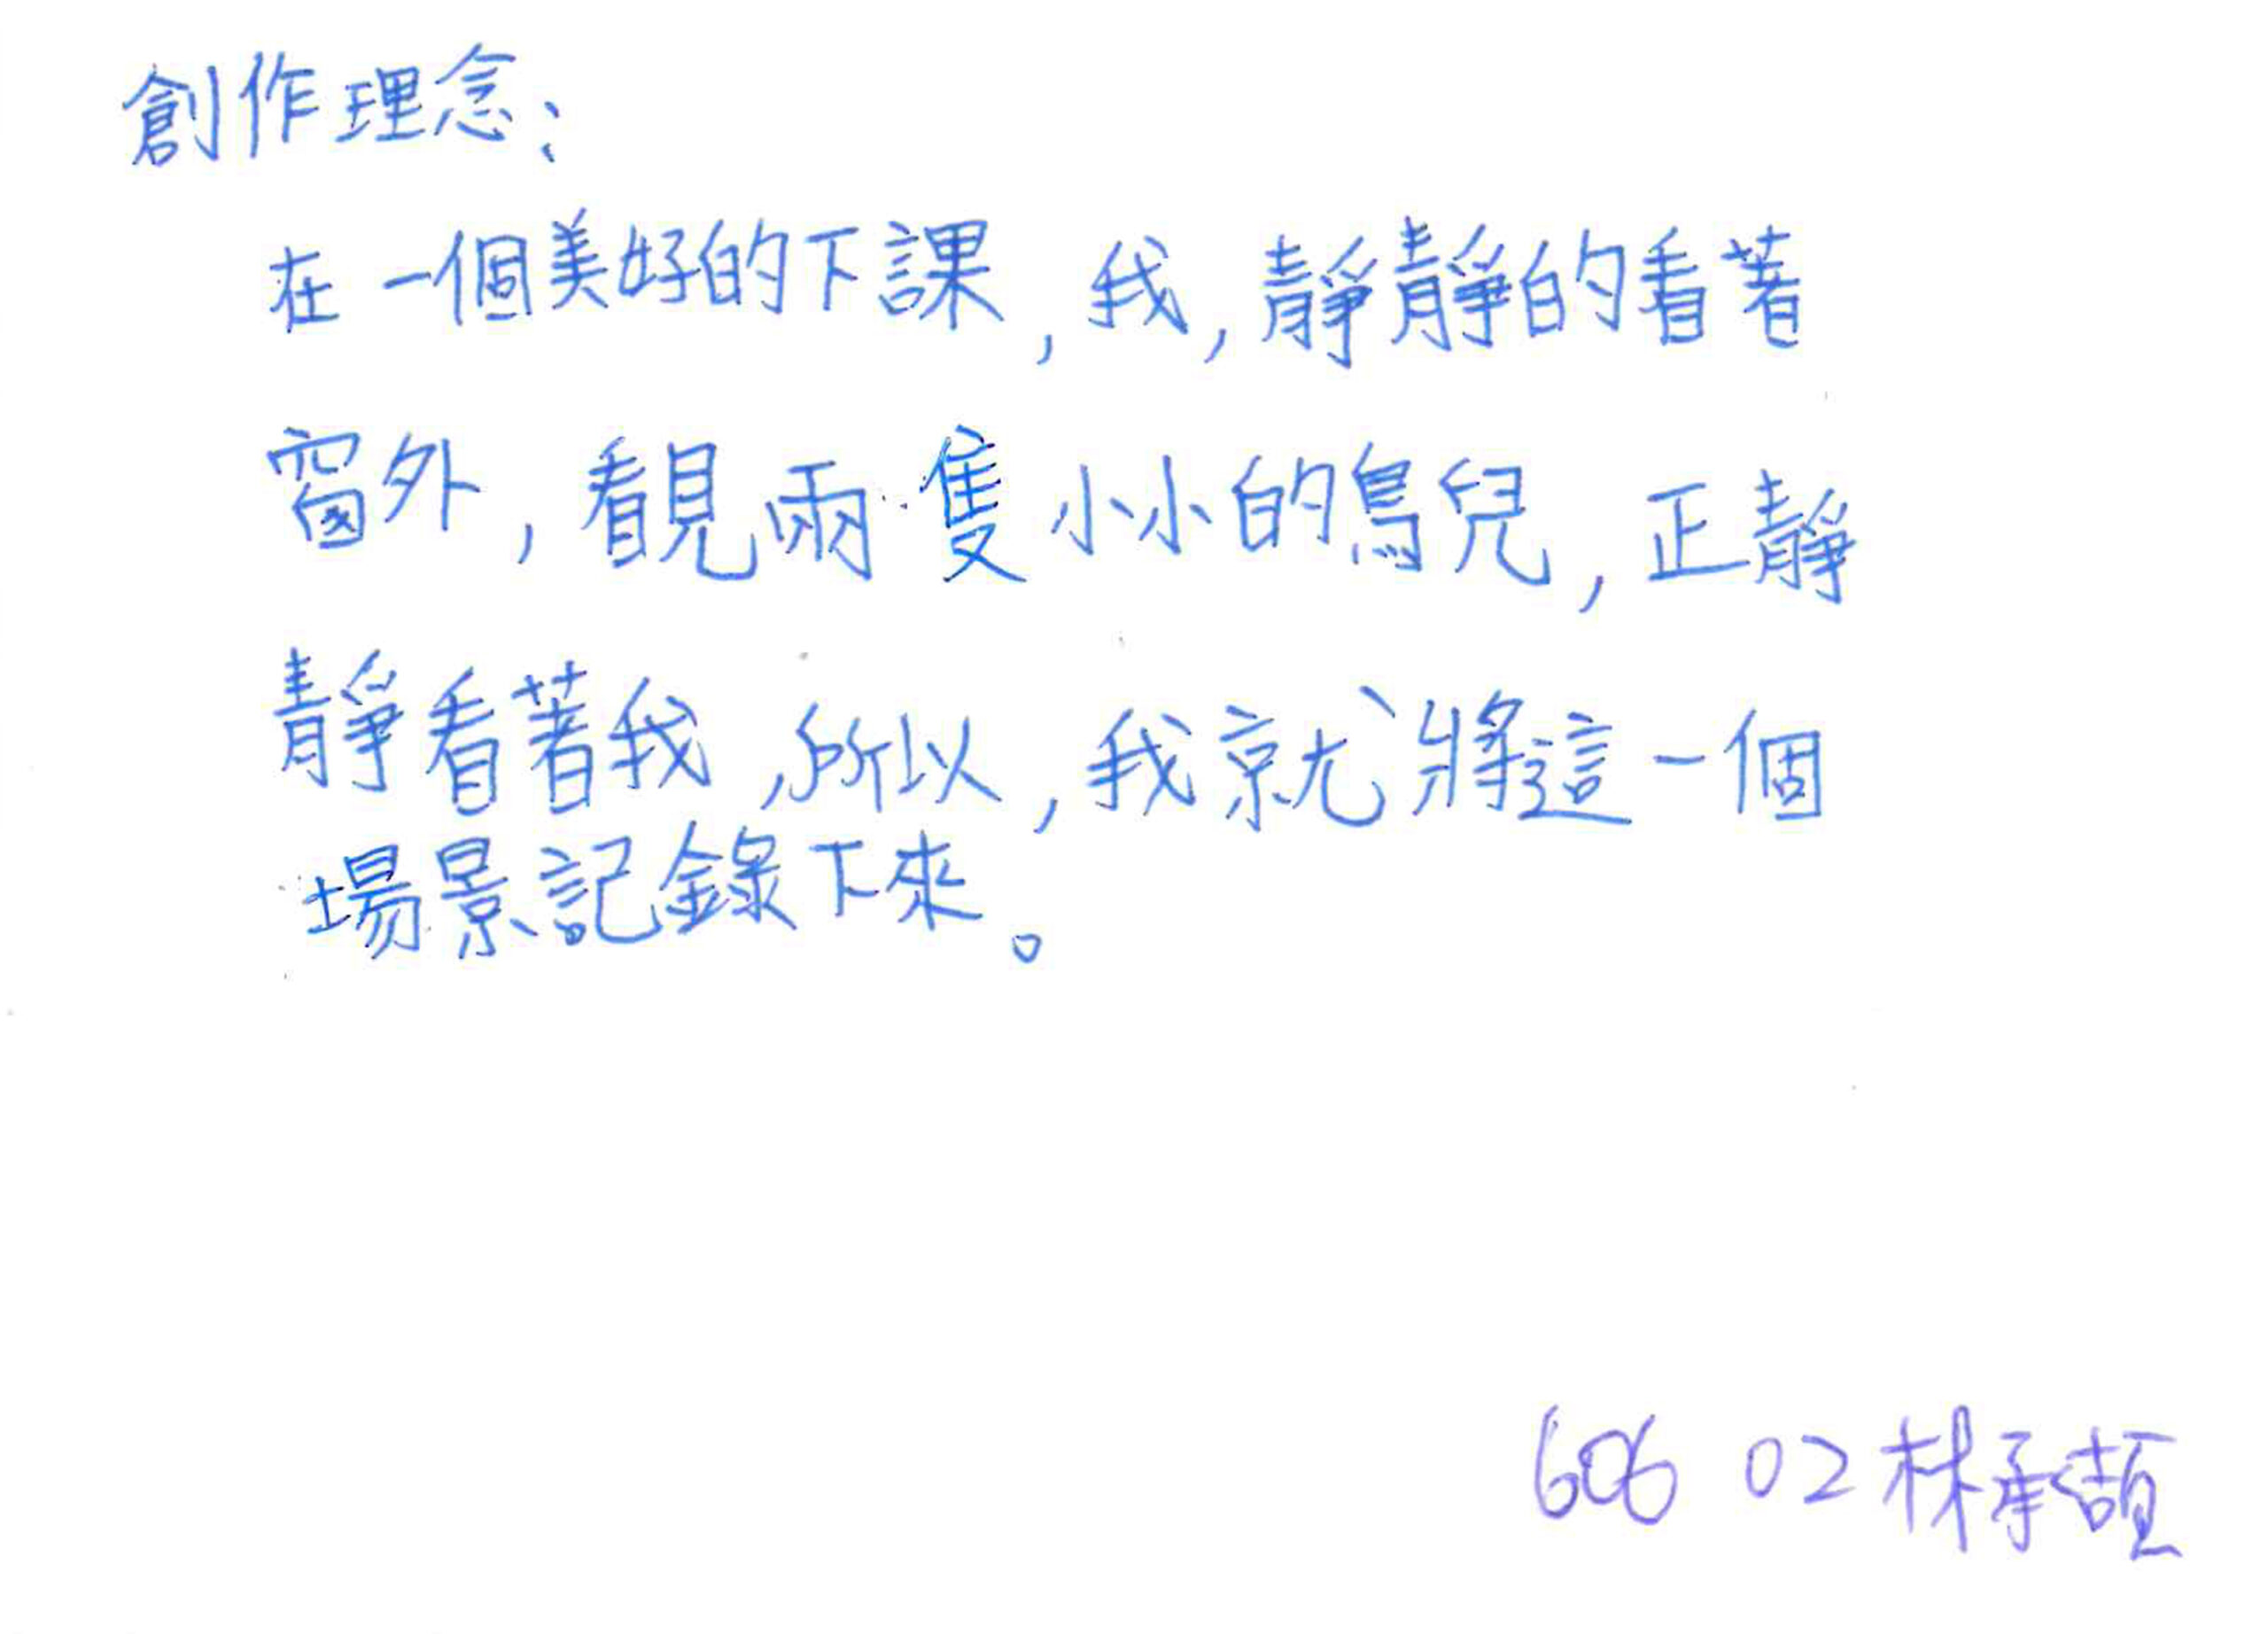 創作理念：
在一個美好的下課，我，靜靜的看著
窗外，看見兩隻小小的鳥兒，正靜
靜看著我，所以，我就將這一個
場景記錄下來。
606 02 林承頡